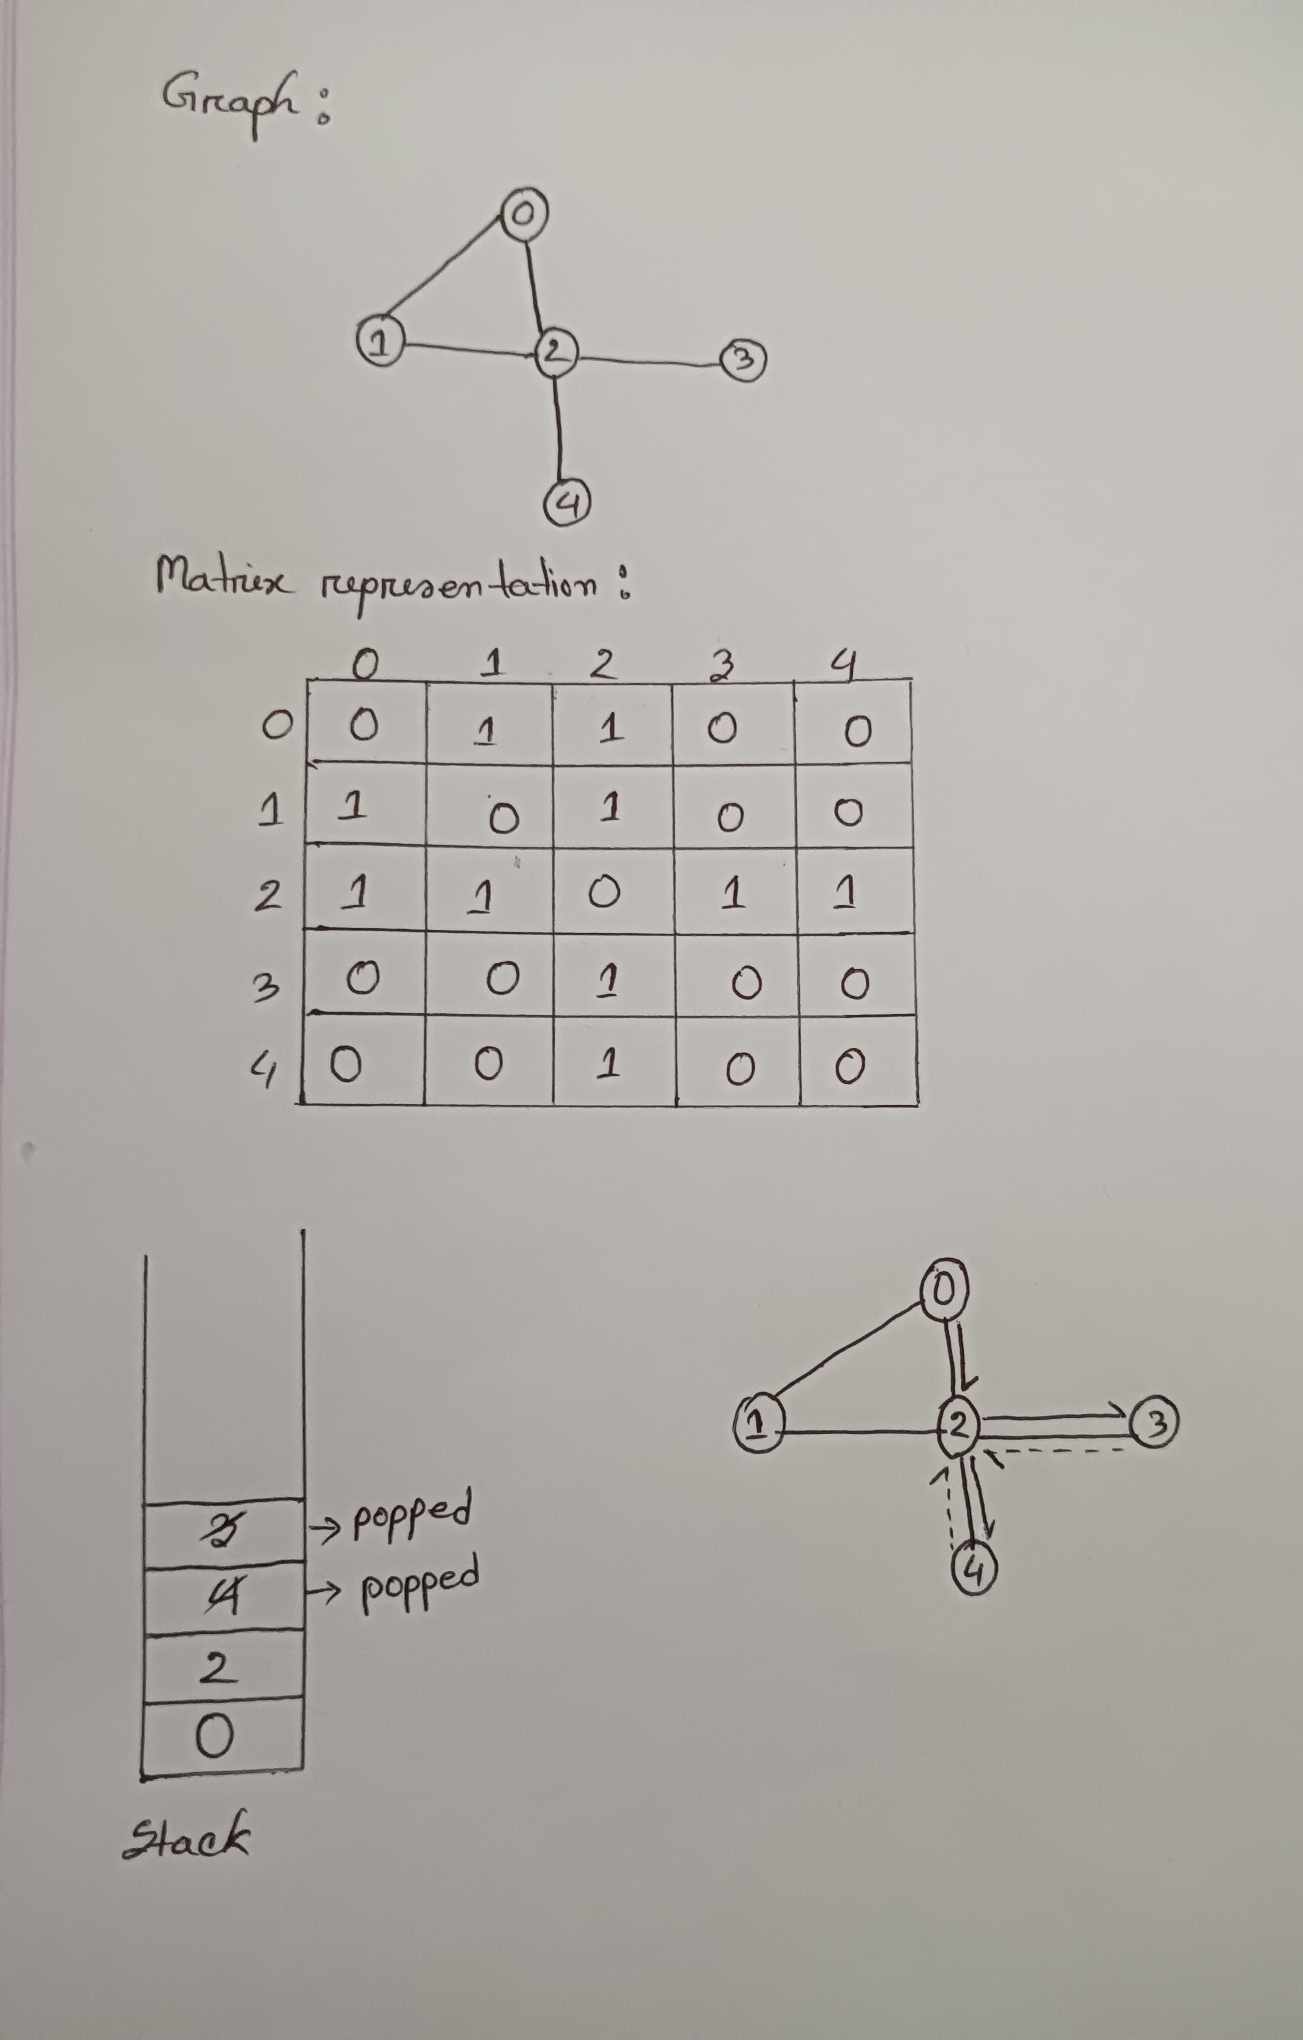 Graph:
0
1 2 3
4
Matrix representation:
0 1 2 3 4
0 0 1 1 0 0
1 1 0 1 0 0
2 1 1 0 1 1
3 0 0 1 0 0
4 0 0 1 0 0
0
1 2 3
4
3 → popped
4 → popped
2
0
Stack